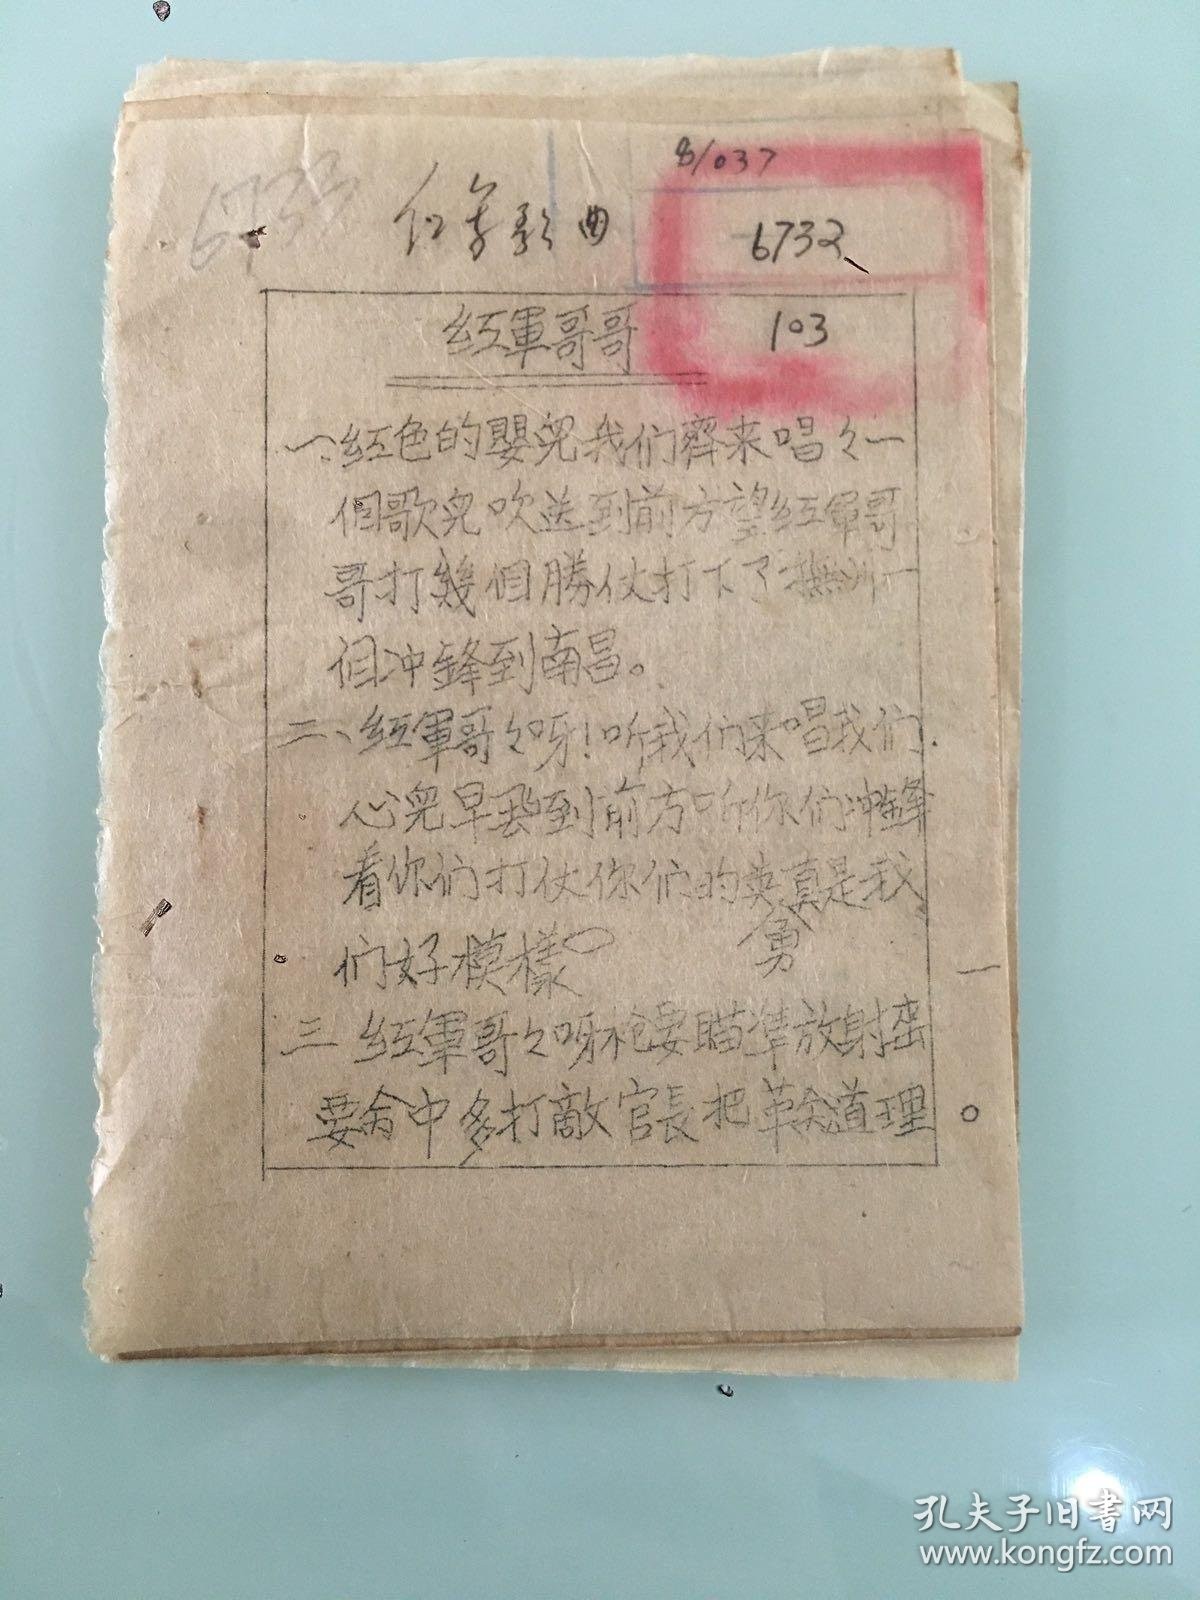 8/037
6733
红军歌曲
6732
103
紅軍哥哥
一、紅色的嬰兒我们齊来唱々一
個歌兒吹送到前方望紅軍哥
哥打幾個勝仗打下了撫州一
個冲鋒到南昌。
二、紅軍哥々呀！听我们来唱我们
心兒早飛到前方听你们冲鋒
看你们打仗你们的英真是我
勇
们好模樣
三 紅軍哥々呀枪要瞄準放射密
要命中多打敵官長把革命道理
孔夫子旧书网
www.kongfz.com